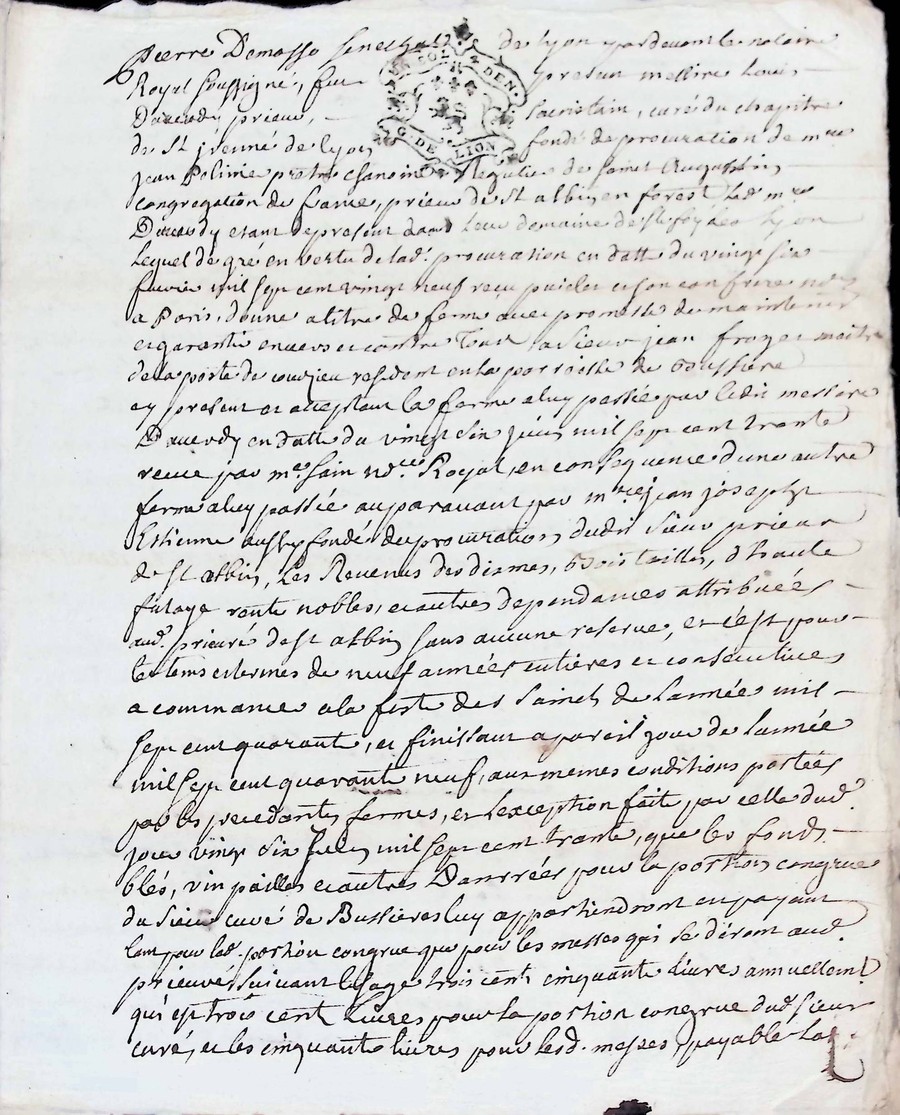 Pierre Demasso senechal de lyon pardevant le notaire
Royal soussigné, fut present messire Louis
Daveydy prieur, sacristain, curé du chapitre
de St jrenné de lyon fondé de procuration de mre
jean Polinie pretre chanoine Regulier de saint Augustin,
congregation de france, prieur de St albin en forest led. mre
etant de present dans leur domaine de Ste foy les lyon
Lequel de gré en vertu de lad. procuration en datte du vingt six
fevrier mil sept cent vingt neuf recu par et son confrere nores
a Paris, donne a titre de ferme avec promesse de maintenir
et garantir envers et contre Tous a Sieur jean froget maitre
de la poste de resident en la parroisse de Bussiere
cy present et acceptant la ferme a luy passée par ledit messire
en datte du vingt six juin mil sept cent trante
receue par me sain nore Royal, en consequence d'une autre
ferme a luy passée auparavant par mre jean joseph
Estienne aussy fondé de procuration dudit sieur prieur
de St albin, Les Revenus des dixmes, Bois taillés, d'haute
futaye rente nobles, et autres dependances attribuées
aud. prieuré de St albin sans aucune reserve, et c'est pour
le tems et termes de neuf année entieres et consecutives
a commancé a la feste des saints de l'année mil
sept cent quarante, et finissant a pareil jour de l'année
mil sept cent quarante neuf, aux memes conditions portées
par les precedantes fermes, et l'exception fait par celle dud.
jour vingt six juin mil sept cent trante, que les fonds
bled, vin pailles et autres Danrrées pour la portion congrue
du Sieur curé de Bussieres luy appartiendront en payant
tant pour lad. portion congrue que pour les messes qui se diront aud.
prieuré suivant l'usage trois cent cinquante livres annuellemt.
qui est trois cent livres pour la portion congrue dud. sieur
curé, et les cinquante livres pour lesd. messes, payable
G. DE LION